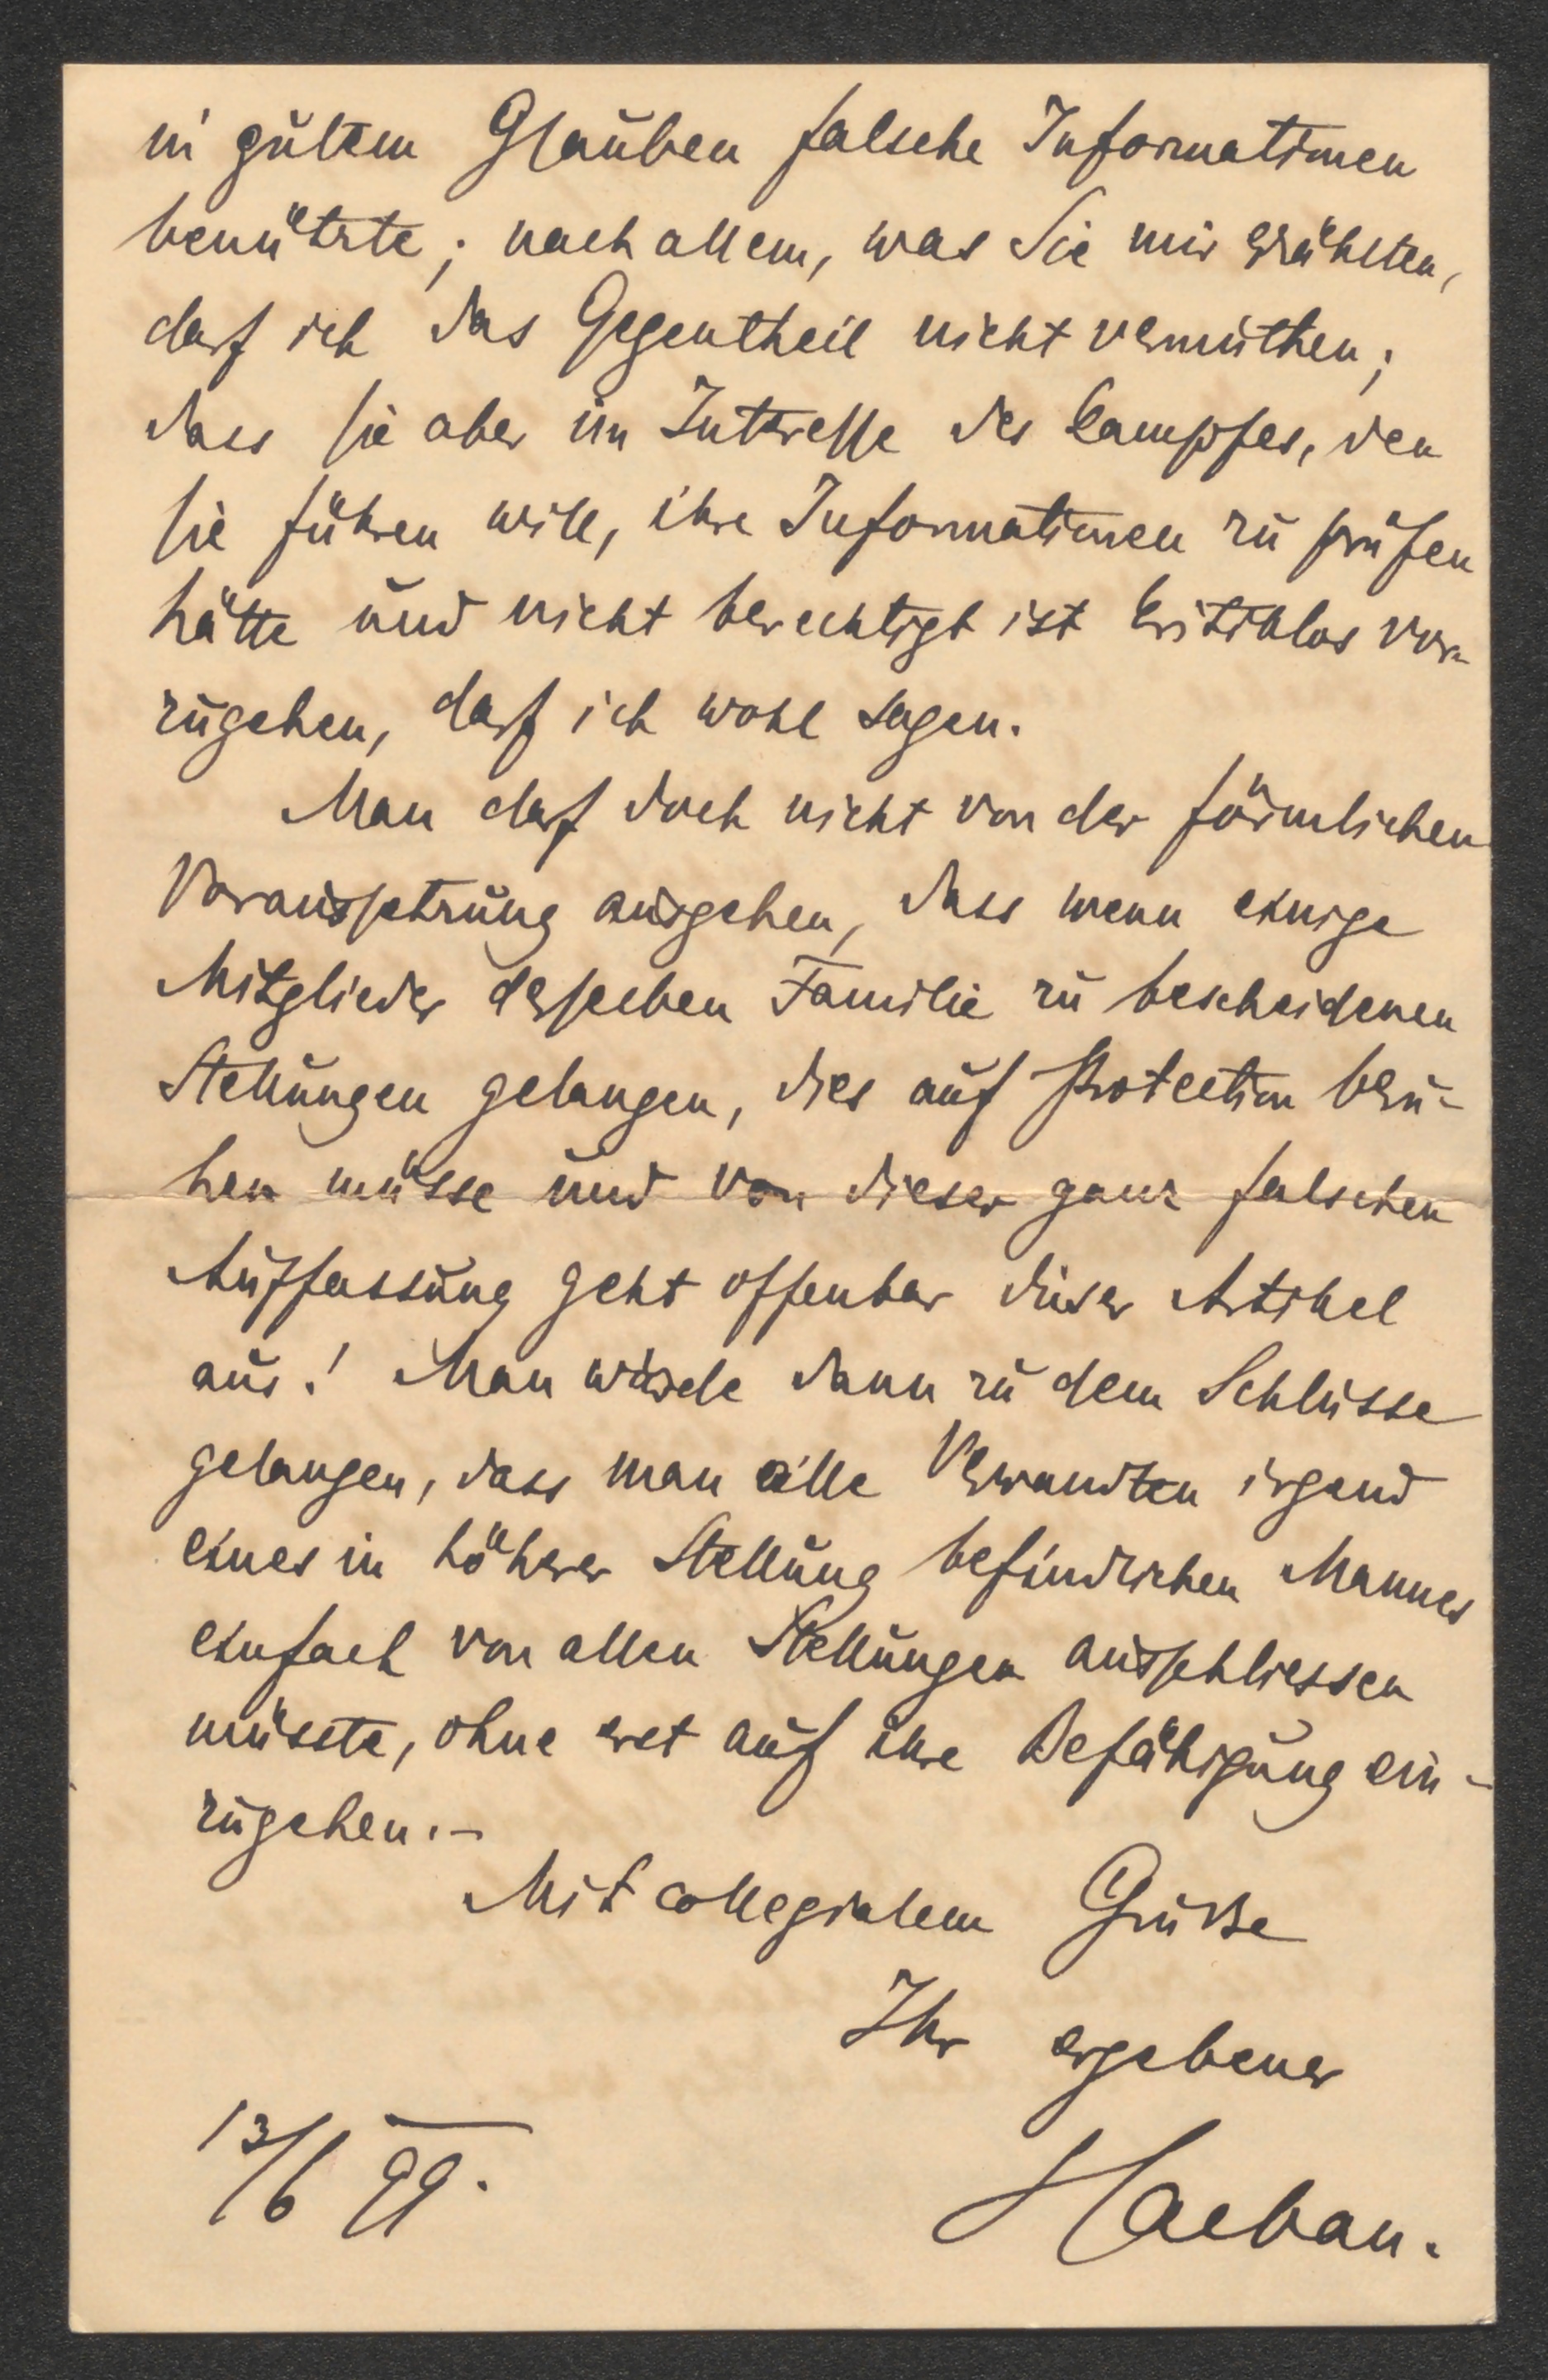 in gutem Glauben falsche Informationen
benützte; nach allem, was Sie mir erzählten,
darf ich das Gegentheil nicht vermuthen;
dass sie aber im Interesse des Kampfes, den
sie führen will, ihre Informationen zu prüfen
hätte und nicht berechtigt ist kritiklos vor-
zugehen, darf ich wohl sagen.
Man darf doch nicht von der förmlichen
Voraussetzung ausgehen, dass wenn einige
Mitglieder derselben Familie zu bescheidenen
Stellungen gelangen, dies auf Protection beru-
hen müsse und von dieser ganz falschen
Auffassung geht offenbar dieser Artikel
aus! Man würde dann zu dem Schlusse
gelangen, dass man alle Verwandten irgend
eines in höherer Stellung befindlichen Mannes
einfach von allen Stellungen ausschliessen
müsste, ohne erst auf ihre Befähigung ein-
zugehen.–
Mit collegialem Gruße
Ihr ergebener
13/6 99.